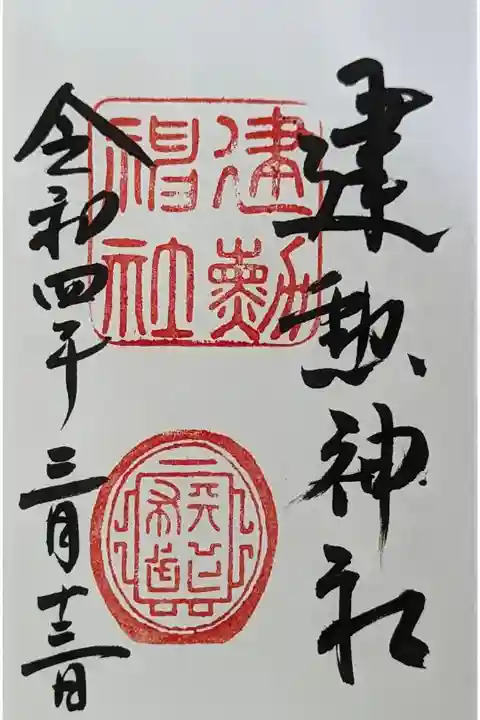 建勲神社
建勲
神社
天下布武
令和四年 三月十三日